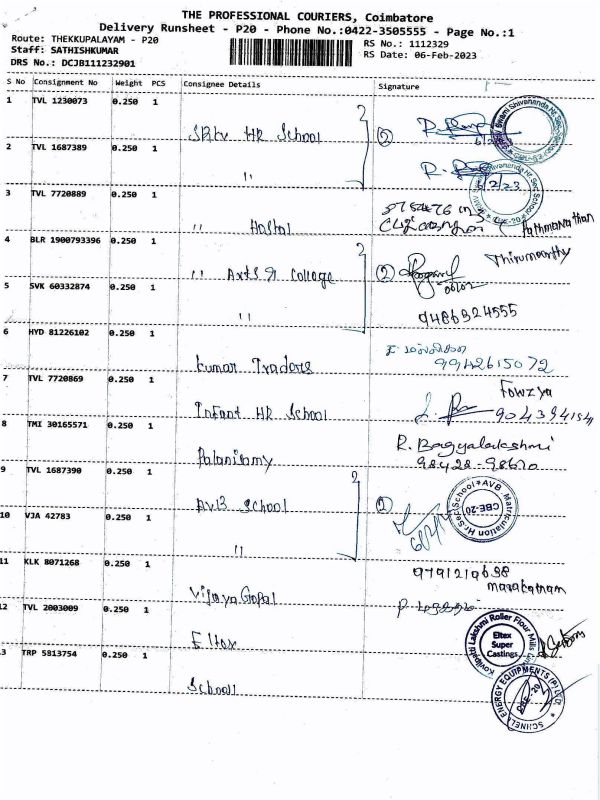 THE PROFESSIONAL COURIERS, Coimbatore
Delivery Runsheet - P20 - Phone No.:0422-3505555 - Page No.:1
Route: THEKKUPALAYAM - P20
RS No.: 1112329
Staff: SATHISHKUMAR
RS Date: 06-Feb-2023
DRS No.: DCJB111232901
S No Consignment No Weight PCS Consignee Details Signature
1 TVL 1230073 0.250 1
HR School
2 TVL 1687389 0.250 1
"
6/2/23
3 TVL 7720889 0.250 1
" Hostal
Pathmanathan
4 BLR 1900793396 0.250 1
" Arts & College
Thirumoorthy
5 SVK 60332874 0.250 1
"
9486324555
6 HYD 81226102 0.250 1
Kumar Traders
9942615072
7 TVL 7720869 0.250 1
Infant HR School
Fowzya
8 TMI 30165571 0.250 1
Palanisamy
R. Bagyalakshmi
98428-98610
9 TVL 1687390 0.250 1
AVB School
AVB Matriculation Hr.Sec.School
CBE-20
10 VJA 42783 0.250 1
"
11 KLK 8071268 0.250 1
Vijaya Gopal
maragatham
12 TVL 2003009 0.250 1
Eltex
Kovilpatti Lakshmi Roller Flour Mills
Eltex
Super
Castings
13 TRP 5813754 0.250 1
ENERGY EQUIPMENTS (P) LTD